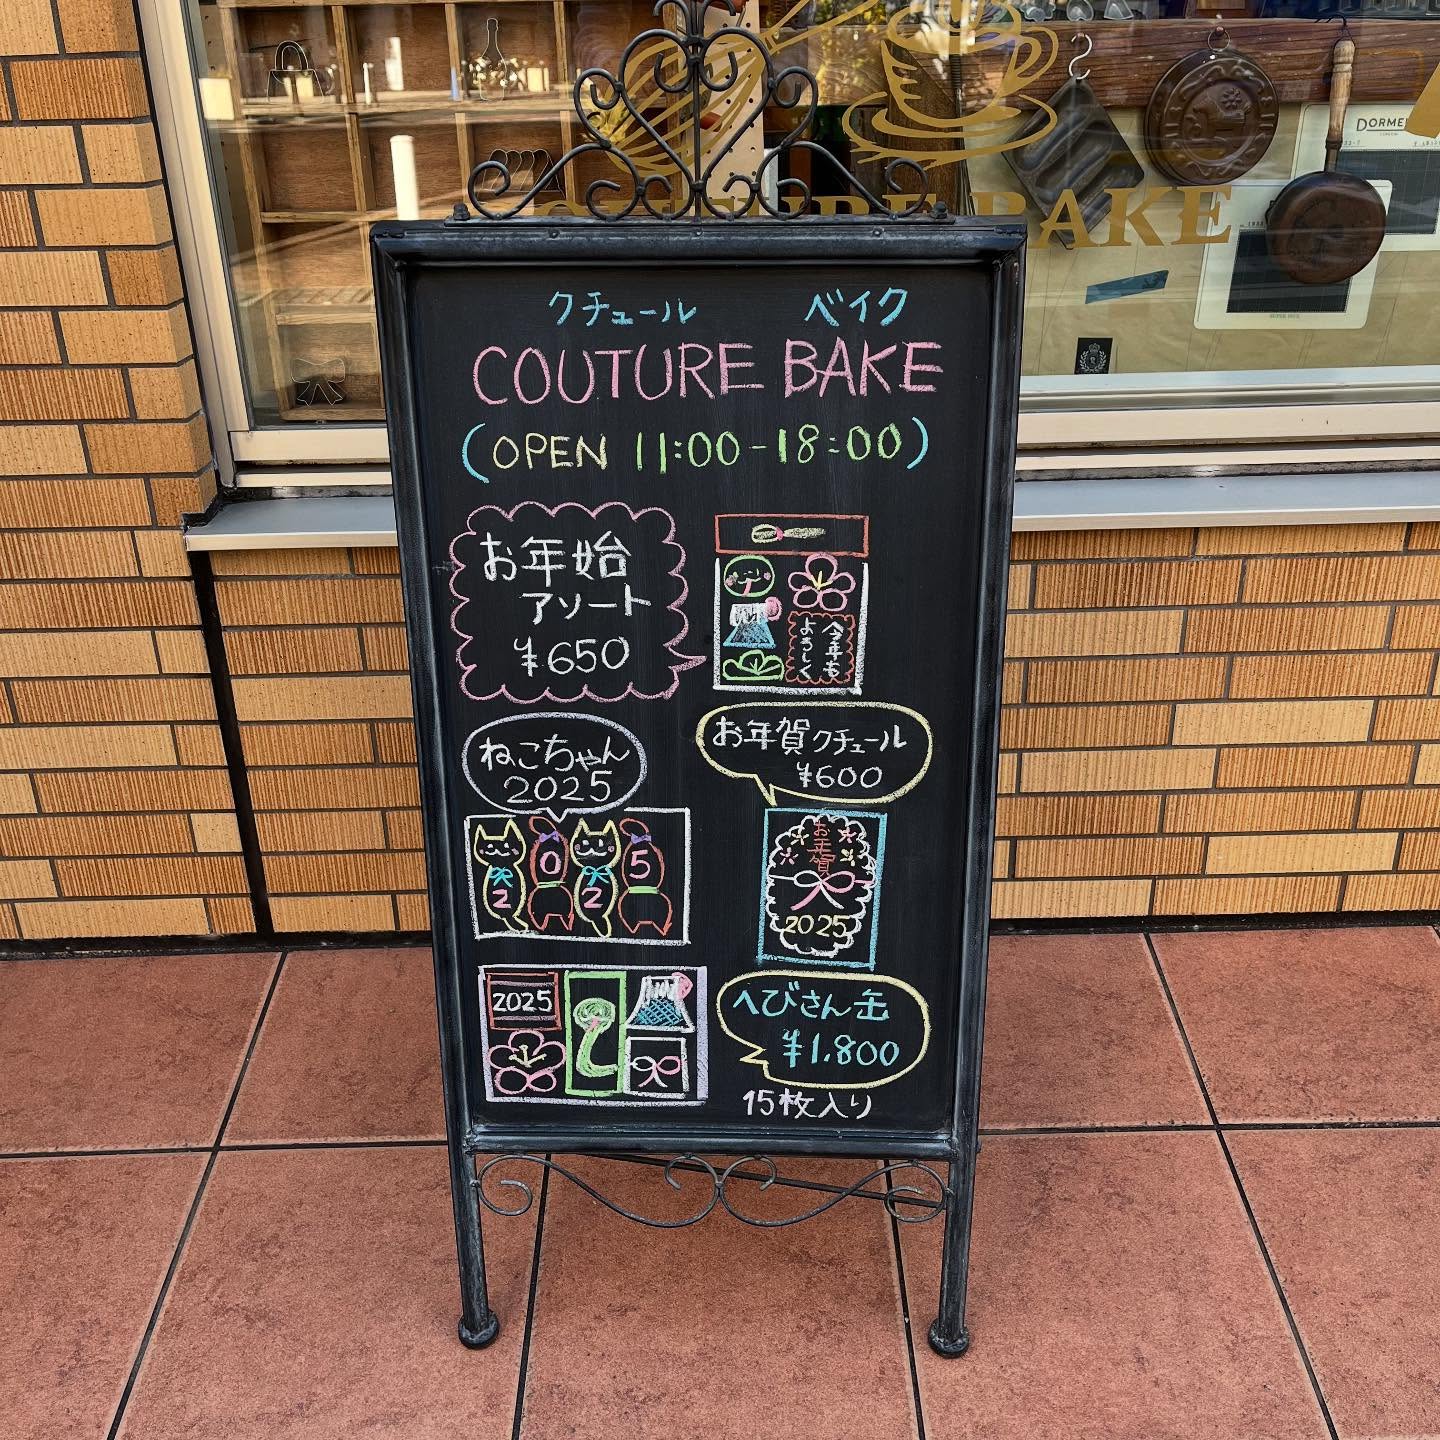 BAKE
DORME
クチュール ベイク
COUTURE BAKE
(OPEN 11:00-18:00)
お年始
アソート
¥650
今年も
よろしく
ねこちゃん
2025
お年賀クチュール
¥600
2 0 2 5
お年賀
2025
2025
へびさん缶
¥1,800
15枚入り